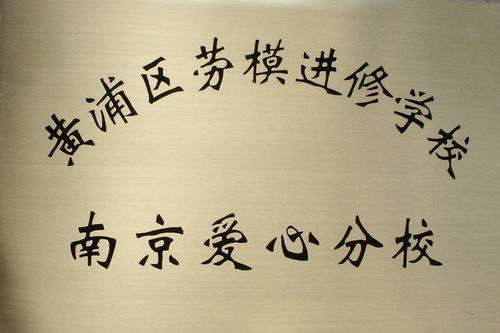 黄浦区劳模进修学校
南京爱心分校